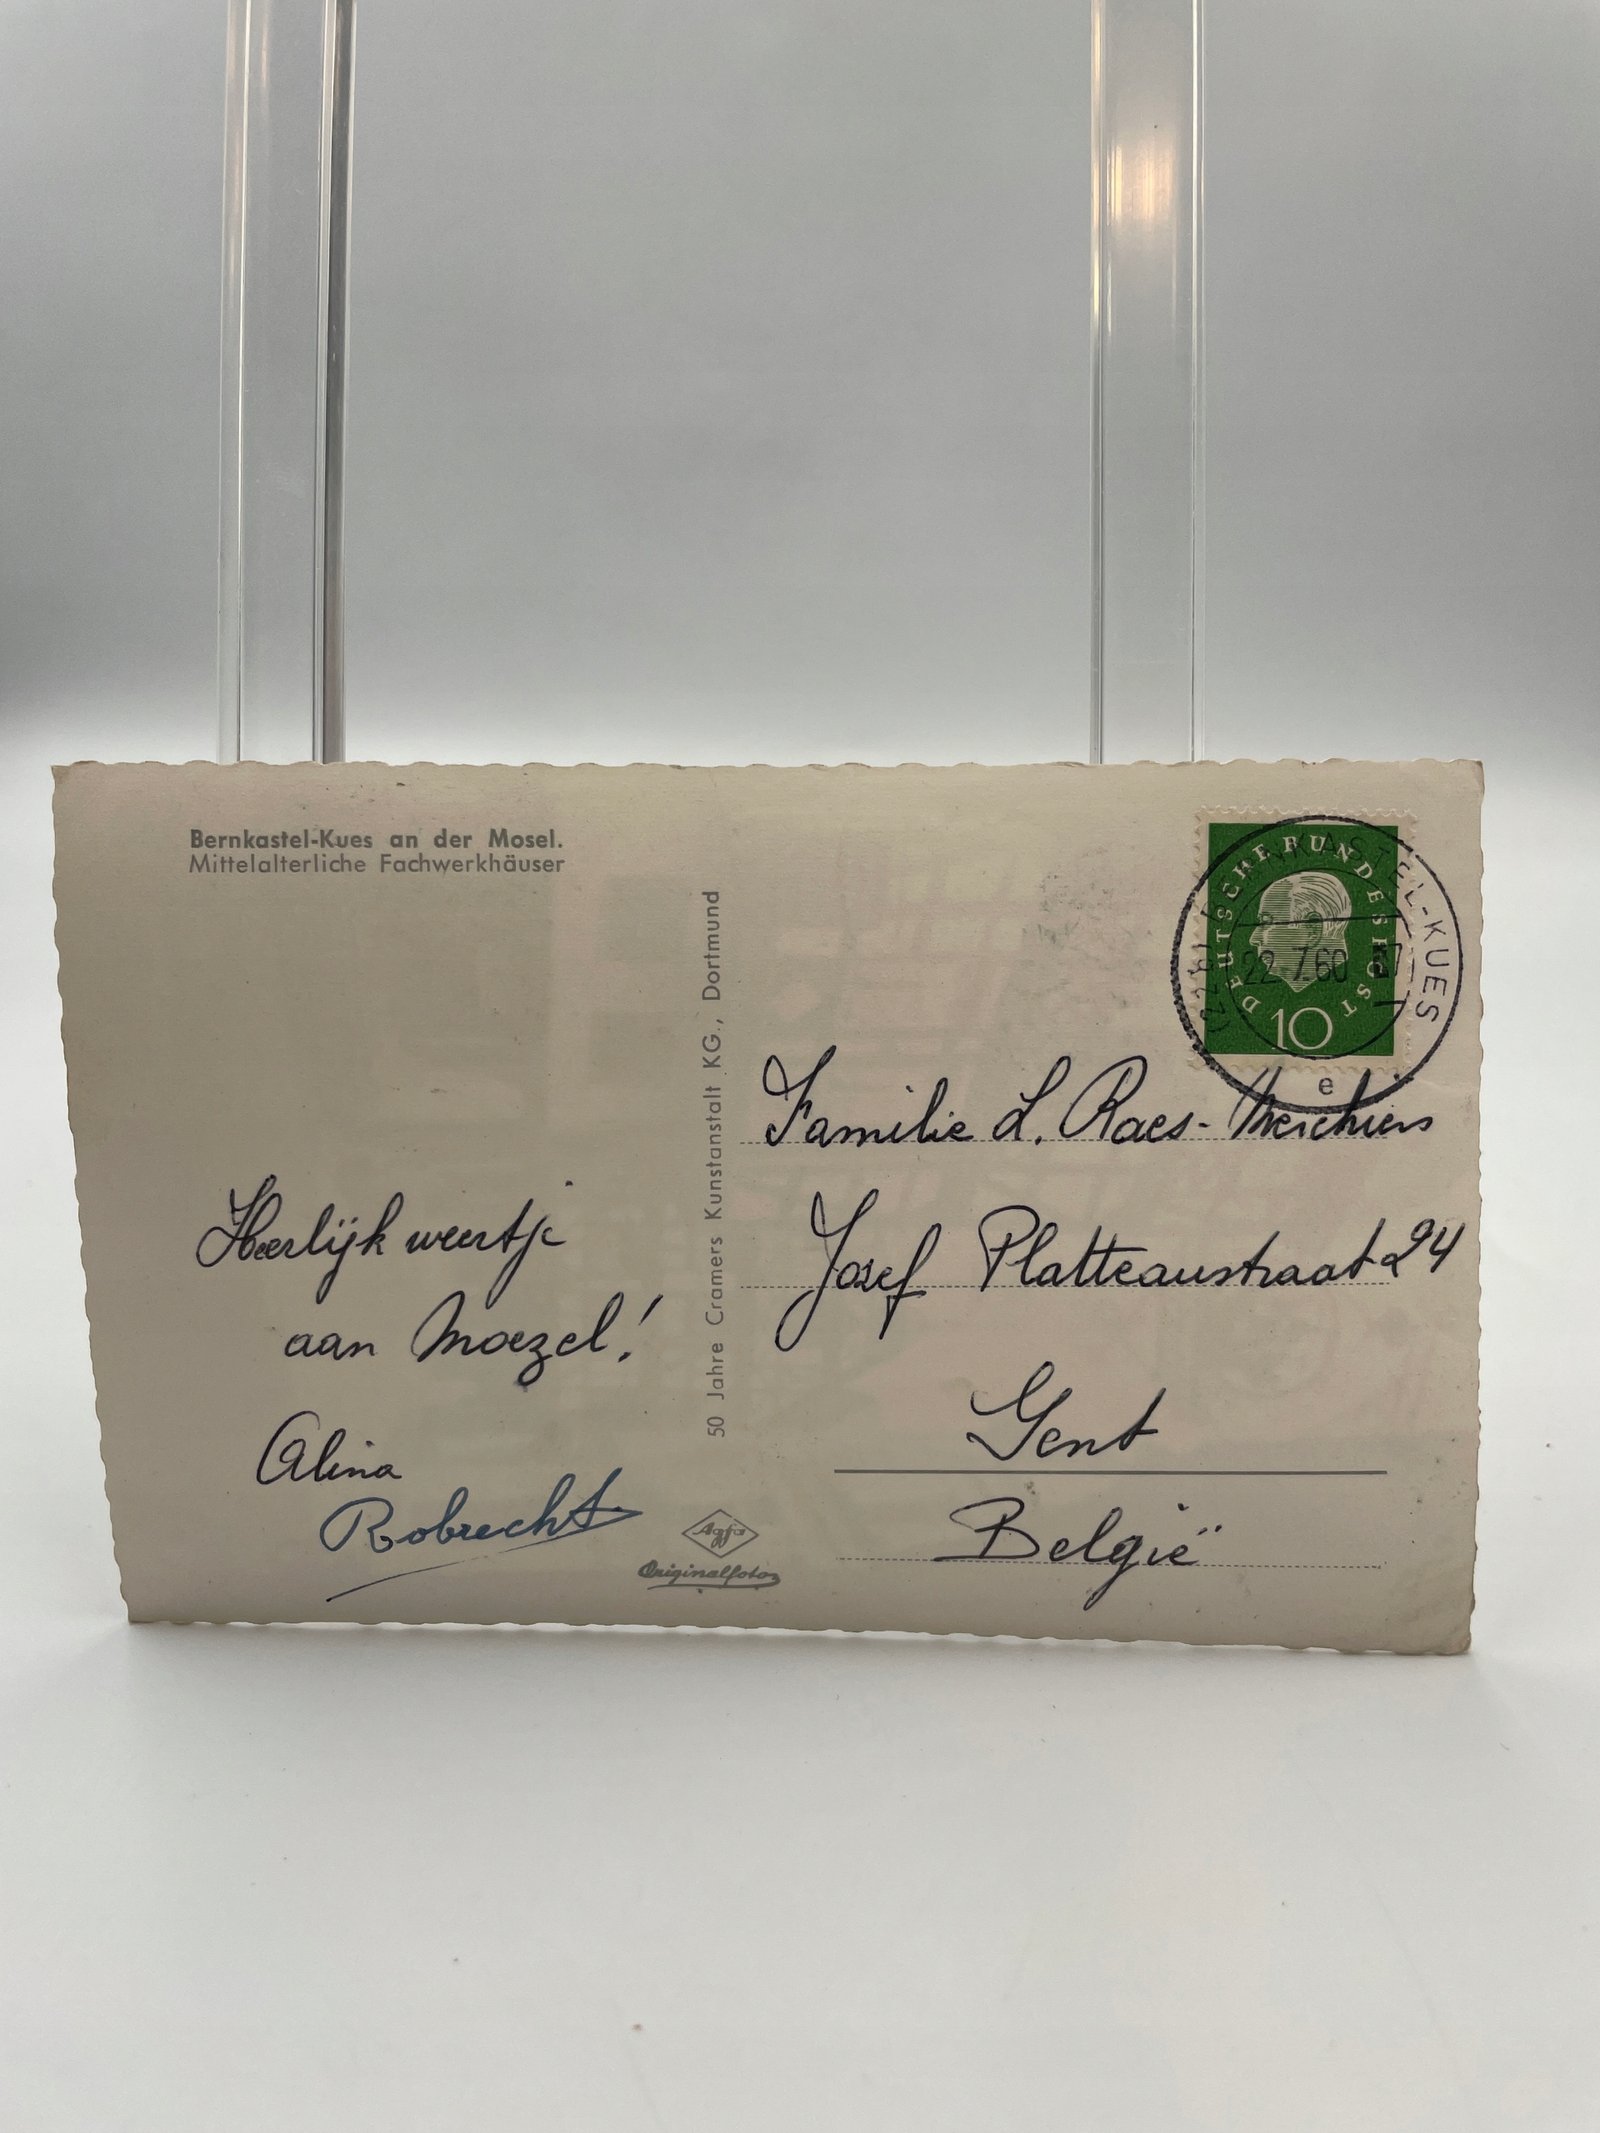 Bernkastel-Kues an der Mosel.
Mittelalterliche Fachwerkhäuser
Heerlijk weertje
aan Moezel!
Alina
Robrecht
50 Jahre Cramers Kunstanstalt KG., Dortmund
Agfa
Originalfoto
DEUTSCHE BUNDESPOST
10
BERNKASTEL-KUES
22.7.60
e
Familie L. Raes-
Josef Platteaustraat 24
Gent
België